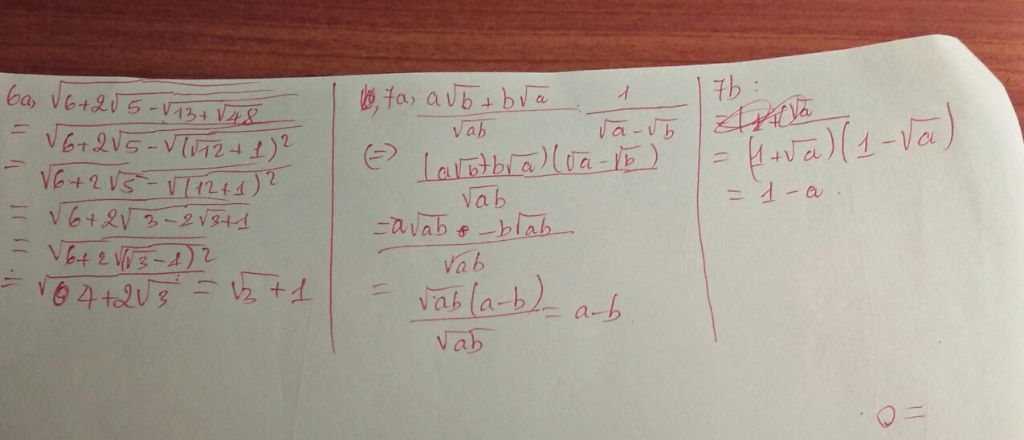 6a, √6+2√5-√13+√48
= √6+2√5-√(√12+1)²
= √6+2√5-√(12+1)²
= √6+2√3-2√3+1
= √6+2√(√3-1)²
= √4+2√3 = √3+1
7a, a√b+b√a / √ab : 1 / √a-√b
(=) (a√b+b√a)(√a-√b) / √ab
= a√ab - b√ab / √ab
= √ab(a-b) / √ab = a-b
7b :
= (1+√a)(1-√a)
= 1-a.
Q=